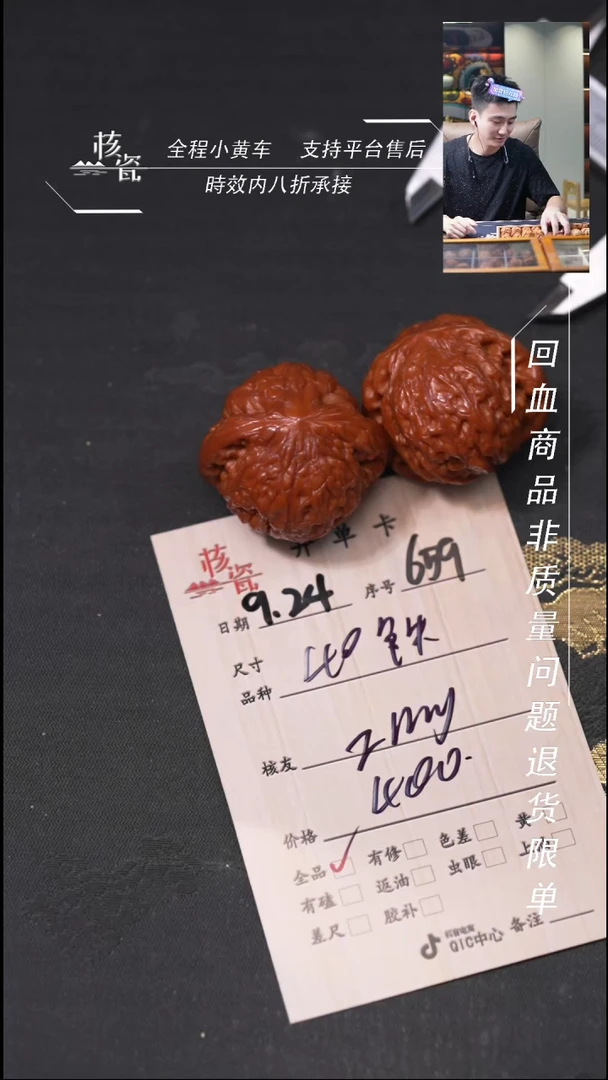 核瓷
全程小黄车 支持平台售后
時效内八折承接
回血商品非质量问题退货限单
核瓷
开单卡
日期 9.24 序号 659
尺寸
品种 40 铁
核友 zmy
400.
价格
全品 ✓ 有修 色差 黄
有磕 返油 虫眼 上
差尺 胶补
抖音电商
QIC中心 备注